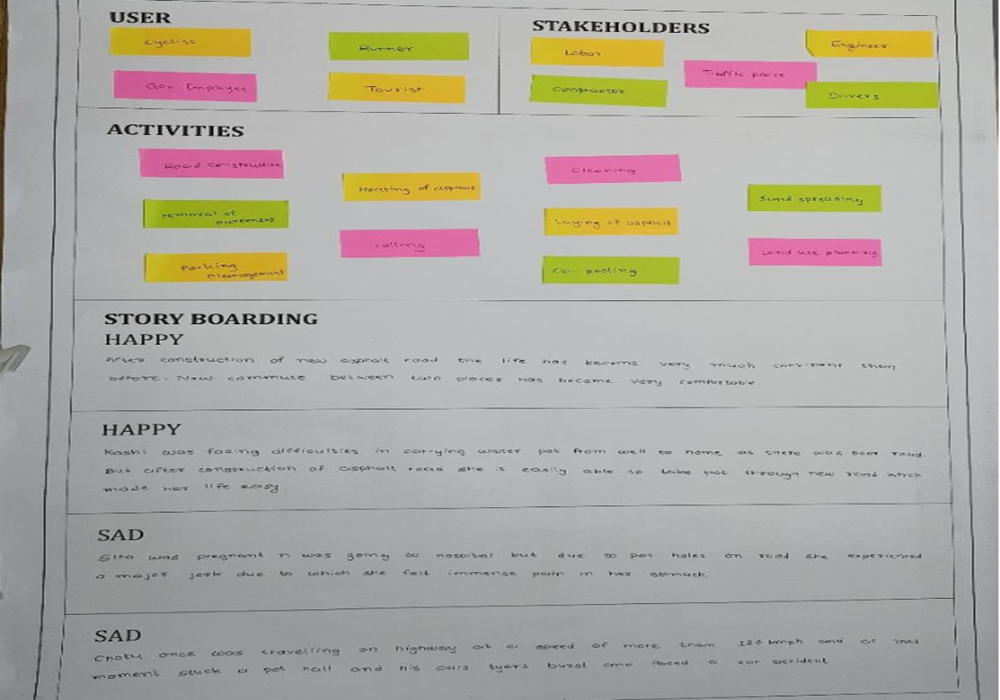 USER
cyclist
Runner
Gov Employee
Tourist
STAKEHOLDERS
Labor
Engineer
Traffic police
Contractor
Drivers
ACTIVITIES
Road construction
Heating of asphalt
Cleaning
Sand spreading
removal of
pavement
rolling
laying of asphalt
Parking
management
Car pooling
Land use planning
STORY BOARDING
HAPPY
After construction of new asphalt road the life has become very much them
before. Now commute between two places has become very comfortable
HAPPY
Kashi was facing difficulties in carrying water pot from well to home as there was poor road.
But after construction of asphalt road she is easily able to take pot through new road which
made her life easy.
SAD
Sita was pregnant n was going to hospital but due to pot holes on road she experienced
a major jerk due to which she felt immense pain in her stomuch.
SAD
Chotu once was travelling on highway at a speed of more than 120 kmph and at that
moment stuck a pot hall and his cars tyers burst and faced a car accident